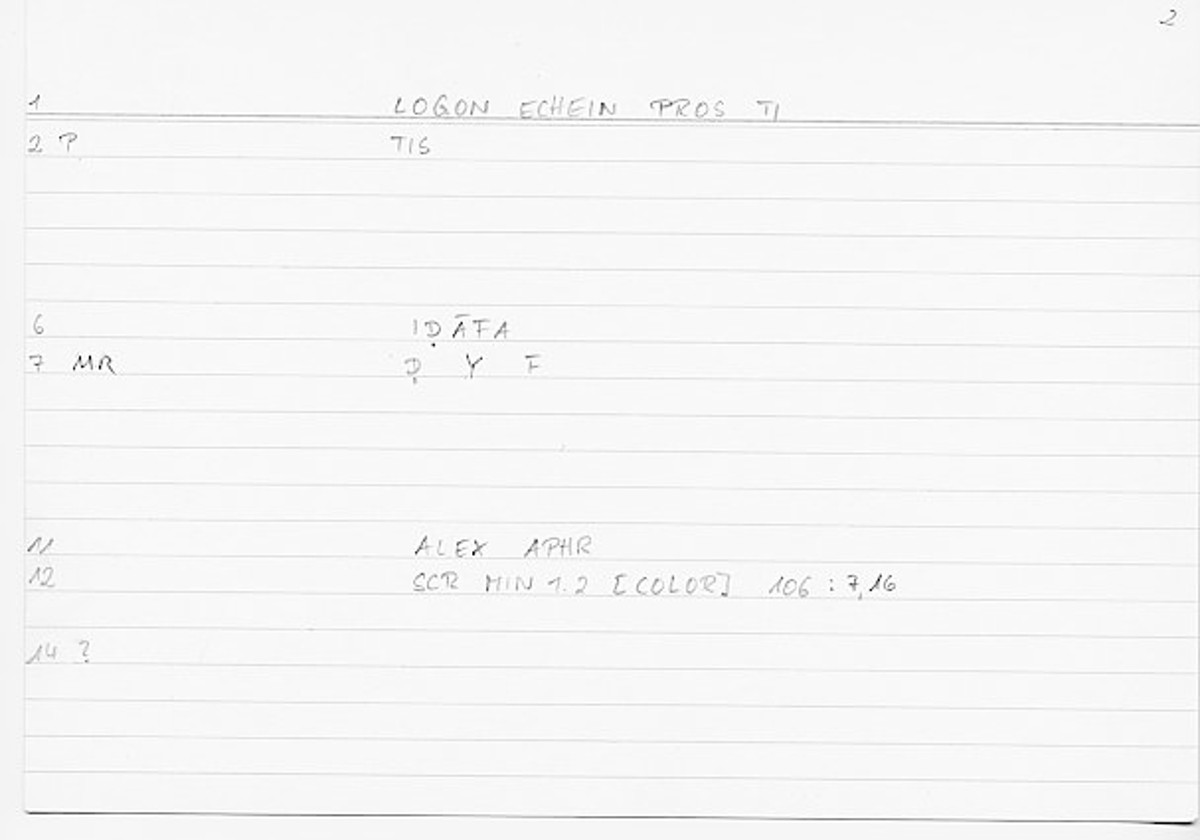 2
1 LOGON ECHEIN PROS TI
2 P TIS
6 IḌĀFA
7 MR Ḍ Y F
11 ALEX APHR
12 SCR MIN 1.2 [COLOR] 106 : 7,16
14 ?